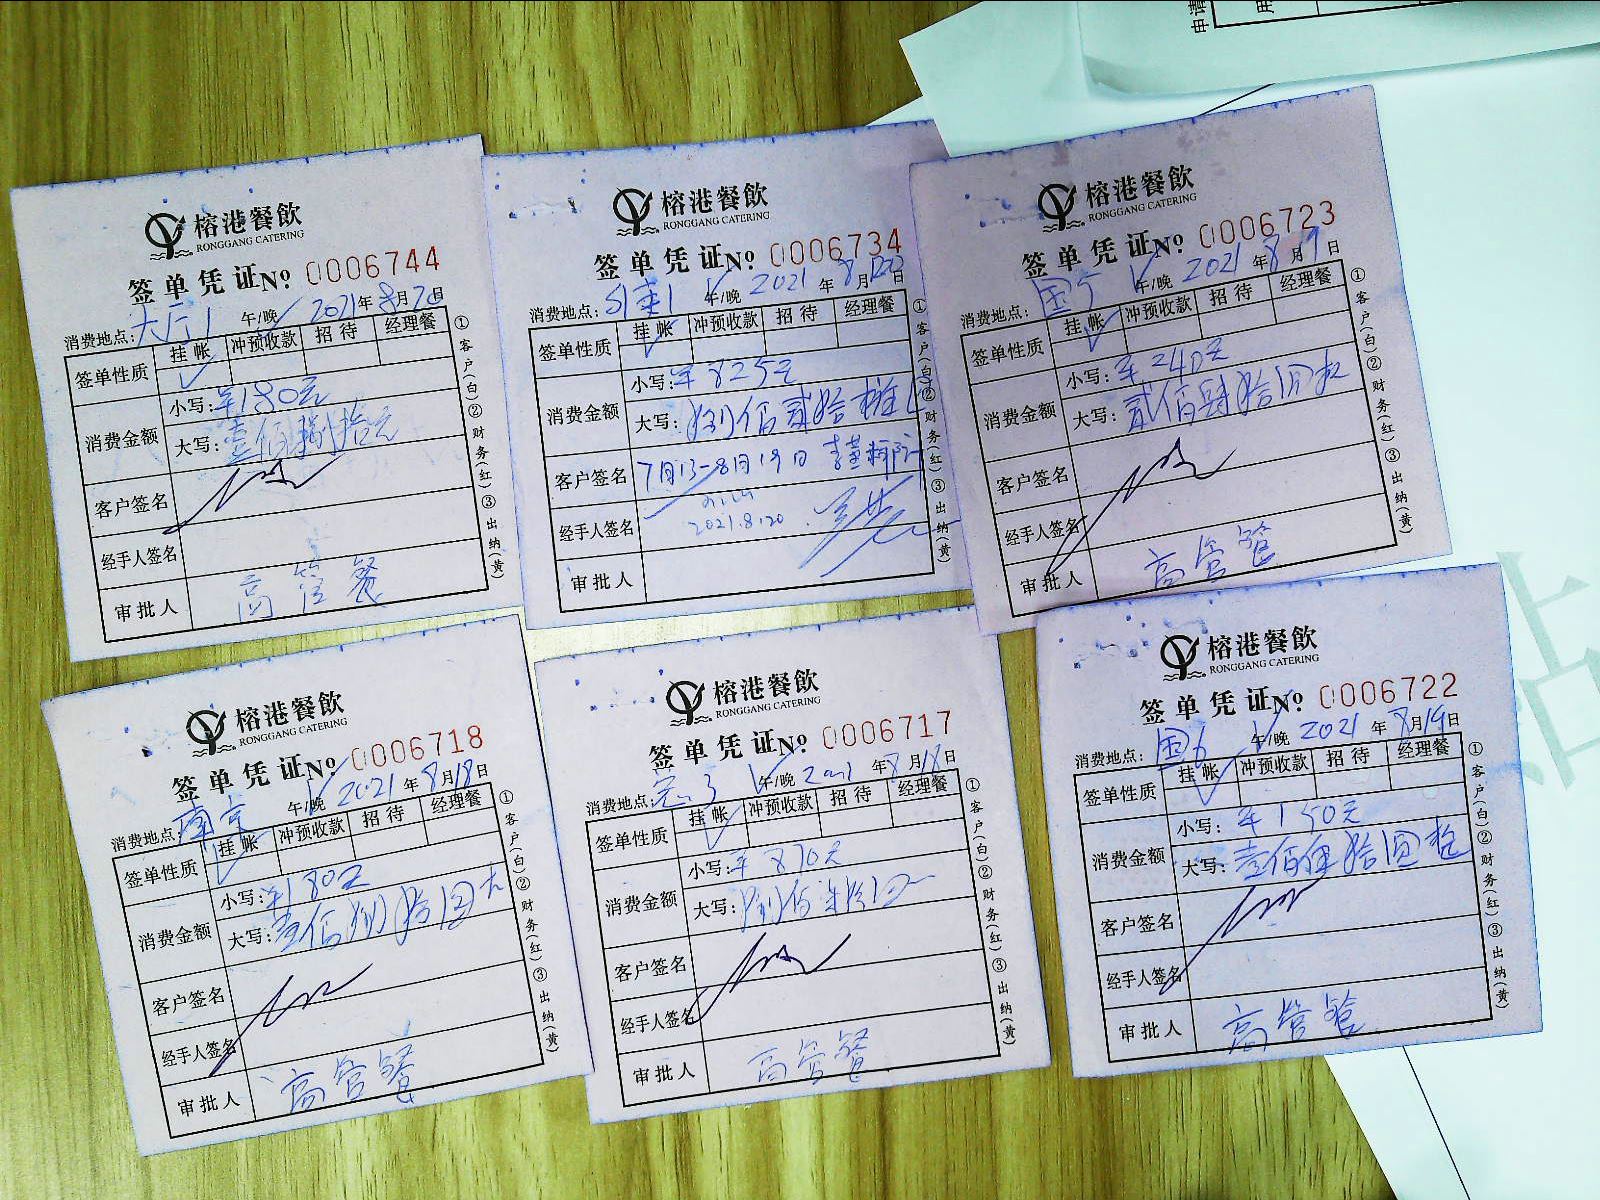 申请
用
榕港餐飲
RONGGANG CATERING
签单凭证№ 0006744
消费地点: 大厅1 午/晚 2021年8月20日
签单性质 挂帐 冲预收款 招待 经理餐
消费金额 小写: ¥180元
大写: 壹佰捌拾元
客户签名
经手人签名
审批人 高管餐
①客户(白)②财务(红)③出纳(黄)
榕港餐飲
RONGGANG CATERING
签单凭证№ 0006734
消费地点: 午/晚 2021年8月日
签单性质 挂帐 冲预收款 招待 经理餐
消费金额 小写: ¥825元
大写: 捌佰贰拾
客户签名 7月13-8月19日
经手人签名 2021.8.20
审批人
①客户(白)②财务(红)③出纳(黄)
榕港餐飲
RONGGANG CATERING
签单凭证№ 0006723
消费地点: 国5 午/晚 2021年8月19日
签单性质 挂帐 冲预收款 招待 经理餐
消费金额 小写: ¥240元
大写: 贰佰肆拾圆整
客户签名
经手人签名
审批人 高管餐
①客户(白)②财务(红)③出纳(黄)
榕港餐飲
RONGGANG CATERING
签单凭证№ 0006718
消费地点: 南京 午/晚 2021年8月18日
签单性质 挂帐 冲预收款 招待 经理餐
消费金额 小写: ¥180元
大写: 壹佰捌拾圆
客户签名
经手人签名
审批人 高管餐
①客户(白)②财务(红)③出纳(黄)
榕港餐飲
RONGGANG CATERING
签单凭证№ 0006717
消费地点: 午/晚 2021年8月18日
签单性质 挂帐 冲预收款 招待 经理餐
消费金额 小写: ¥870元
大写: 捌佰柒拾
客户签名
经手人签名
审批人 高管餐
①客户(白)②财务(红)③出纳(黄)
榕港餐飲
RONGGANG CATERING
签单凭证№ 0006722
消费地点: 国6 午/晚 2021年8月19日
签单性质 挂帐 冲预收款 招待 经理餐
消费金额 小写: ¥150元
大写: 壹佰伍拾圆整
客户签名
经手人签名
审批人 高管餐
①客户(白)②财务(红)③出纳(黄)